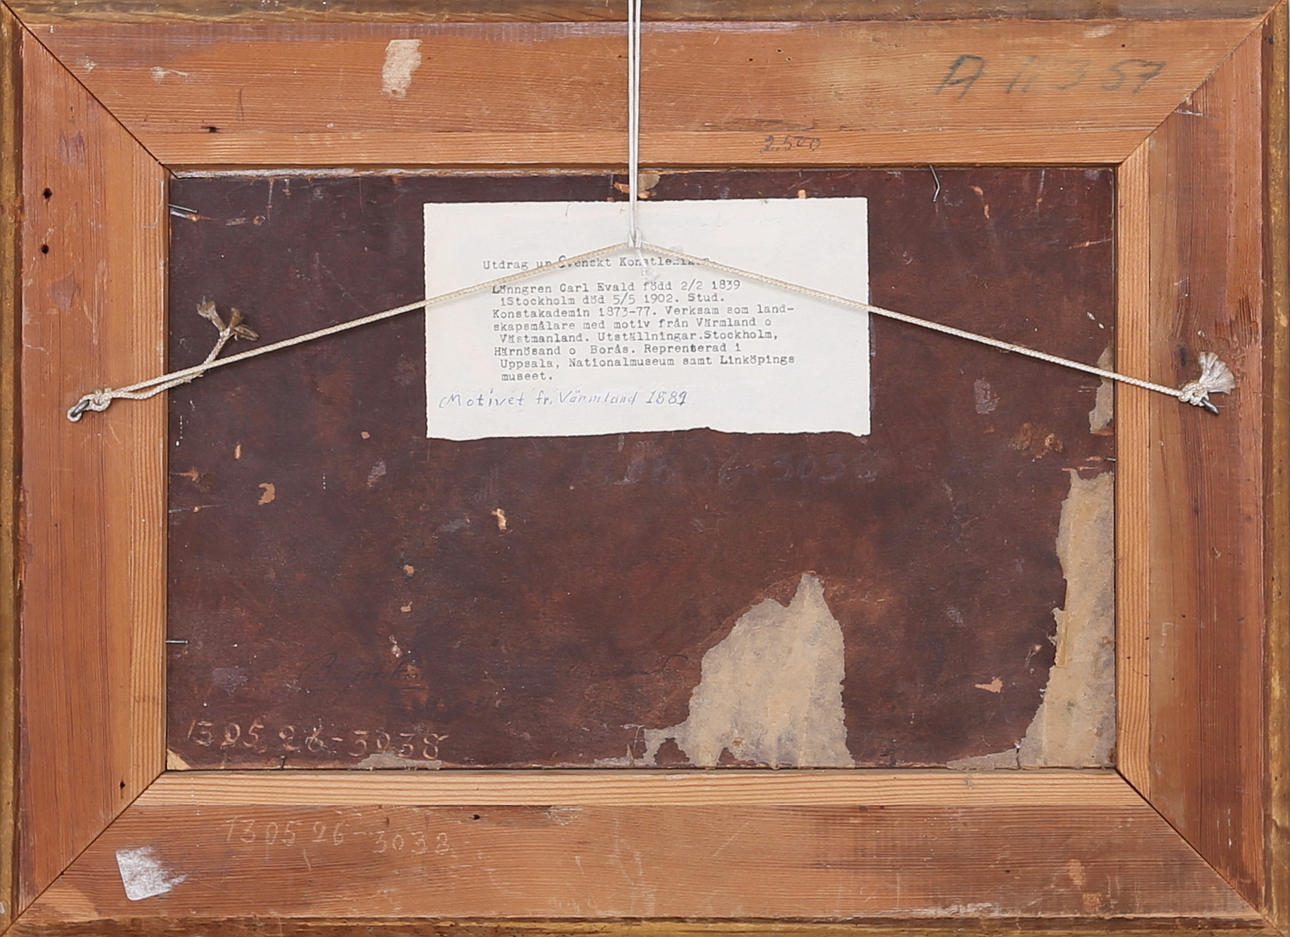 A 11357
2.500
Utdrag ur Svenskt Konstlexikon
Lönngren Carl Evald född 2/2 1839
iStockholm död 5/5 1902. Stud.
Konstakademin 1873-77. Verksam som land-
skapsmålare med motiv från Värmland o
Västmanland. Utställningar.Stockholm,
Härnösand o Borås. Reprenterad i
Uppsala, Nationalmuseum samt Linköpings
museet.
Motivet fr. Värmland 1889
3033
130526-3038
130526-3033